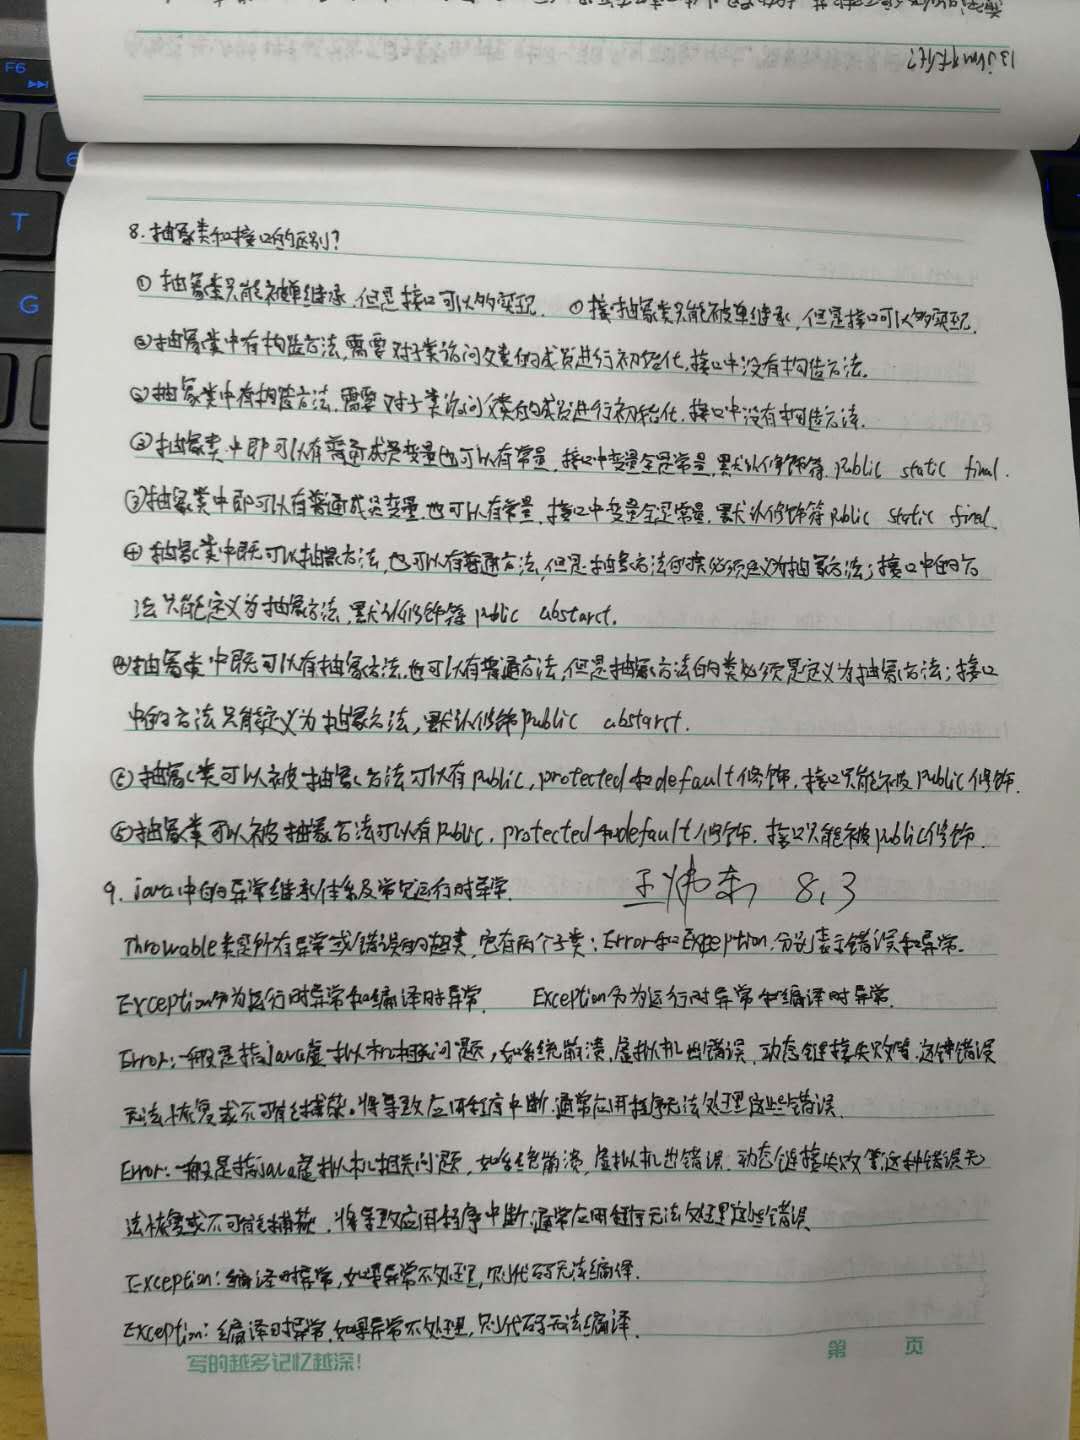 13.jvm
F6
6
T
G
8.抽象类和接口的区别?
① 抽象类只能被单继承,但是接口可以多实现. ①接抽象类只能被单继承,但是接口可以多实现.
②抽象类中有构造方法,需要对子类访问父类的成员进行初始化,接口中没有构造方法.
②抽象类中有构造方法,需要对子类访问父类的成员进行初始化,接口中没有构造方法.
③抽象类中即可以有普通成员变量也可以有常量,接口中变量全是常量,默认修饰符 Public static final.
③抽象类中即可以有普通成员变量,也可以有常量,接口中变量全是常量,默认修饰符 Public static final.
④抽象类中既可以抽象方法,也可以有普通方法,但是抽象方法的类必须定义为抽象方法;接口中的方
法只能定义为抽象方法,默认修饰符 public abstarct.
④抽象类中既可以有抽象方法,也可以有普通方法,但是抽象方法的类必须是定义为抽象方法;接口
中的方法只能定义为抽象方法,默认修饰public abstarct.
⑤抽象类可以被抽象方法可以有public,protected和default修饰,接口只能被public修饰.
⑤抽象类可以被抽象方法可以有Public,protected和default修饰,接口只能被public修饰.
9.java中的异常继承体系及常见运行时异常 8.3
Throwable类是所有异常或错误的超类,它有两个子类:Error和Exception,分别表示错误和异常.
Exception分为运行时异常和编译时异常. Exception分为运行时异常和编译时异常.
Error:一般是指java虚拟机相关问题,如系统崩溃,虚拟机出错误,动态链接失败等,这种错误
无法恢复或不可能捕获。将导致应用程序中断.通常应用程序无法处理这些错误.
Error:一般是指java虚拟机相关问题,如系统崩溃,虚拟机出错误,动态链接失败等,这种错误无
法恢复或不可能捕获,将导致应用程序中断,通常应用程序无法处理这些错误
Exception:编译时异常,如果异常不处理,则代码无法编译.
Exception:编译时异常,如果异常不处理,则代码无法编译.
写的越多记忆越深!
第 页